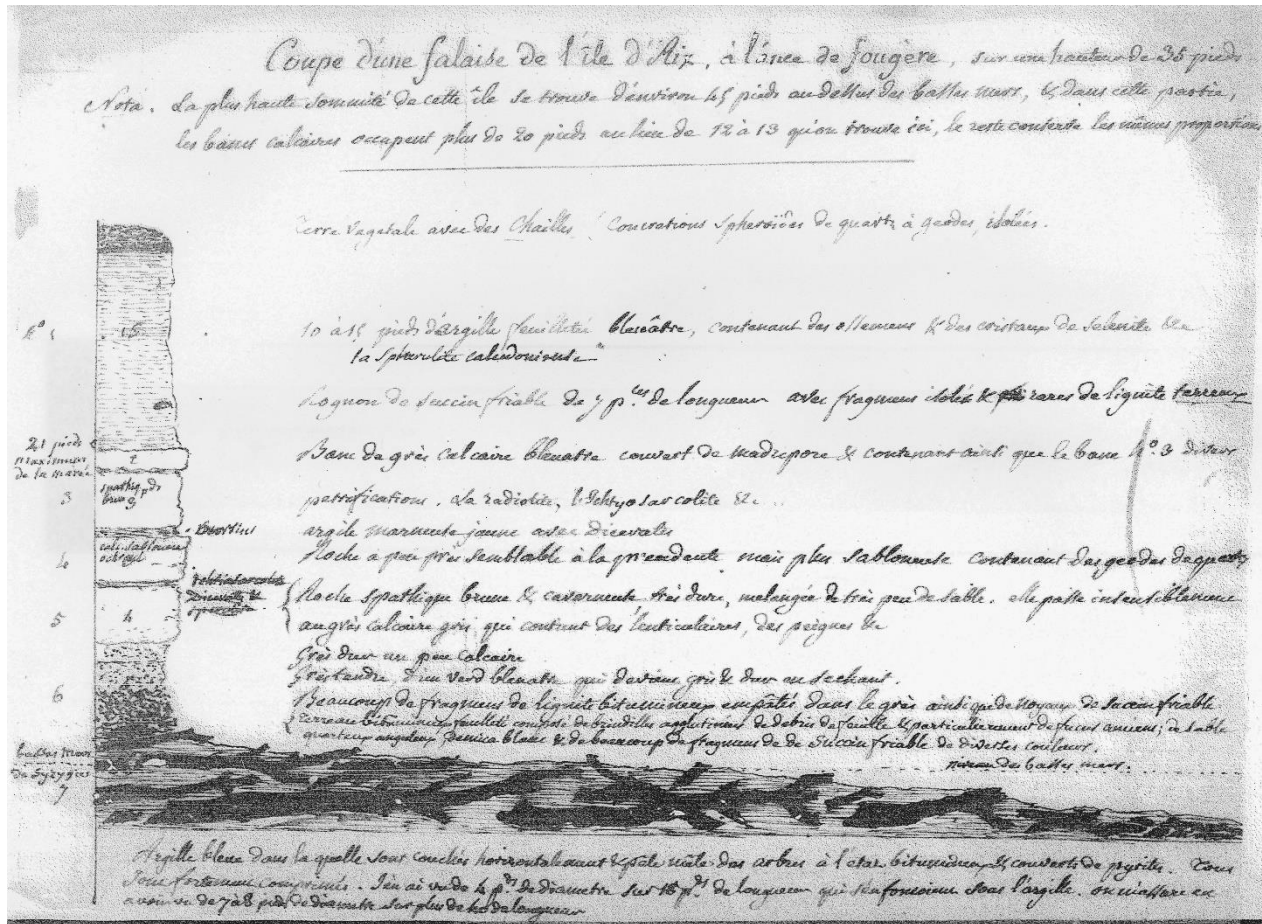 Coupe d'une falaise de l'île d'Aix, à l'anse de fougère, sur une hauteur de 35 pieds
Nota. La plus haute sommité de cette île se trouve d'environ 45 pieds au dessus des basses mers, & dans cette partie,
les bancs calcaires occupent plus de 20 pieds au lieu de 12 à 13 qu'on trouve ici, le reste conserve les mêmes proportions
Terre vegetale avec des Chailles / Concretions spheroïdes de quartz à geodes, isolées.
n° 1
15
10 à 15 pieds d'argille feuilletée bleuâtre, contenant des ossemens & des cristaux de selenite &c
la spherulite
Rognon de succin friable de 7 p.ces de longueur avec fragmens isolés & rares de lignite terreux
21 pieds
maximum
de la marée
2
Banc de grès calcaire bleuatre couvert de madrepore & contenant ainsi que le banc n° 3 divers
3
spathiq
brun
petrifications. La radiolite, l'Ichtyosarcolite &c..
argile marneuse jaune avec dicerates
4
Roche a peu près semblable à la precedente mais plus sabloneuse contenant des geodes de quartz
5
4
Roche spathique brune & caverneuse très dure, melangée de très peu de sable. elle passe insensiblement
au grès calcaire gris qui contient des lenticulaires, des peignes &c
Grès dur un peu calcaire
Grès tendre, d'un verd bleuatre qui devient gris & dur en sechant.
6
Beaucoup de fragmens de lignite bitumineux empâtés dans le grès ainsi que de noyaux de succin friable
terreau bitumineux feuilleté composé de brindilles agglutinées de debris de feuille & particulierement de fucus anciens; de sable
quartzeux anguleux, de mica blanc & de beaucoup de fragmens de de succin friable de diverses couleurs.
basses mers
de Syzygies
7
niveau des basses mers.
Argille bleue dans la quelle sont couchés horizontalement & pêle mêle des arbres à l'etat bitumineux & couverts de pyrite. Tous
sont fortement comprimés. J'en ai vu de 4 p.ds de diametre sur 15 p.ds de longueur qui s'enfoncoient sous l'argille. on m'assure en
avoir vu de 7 à 8 pieds de diametre sur plus de de longueur